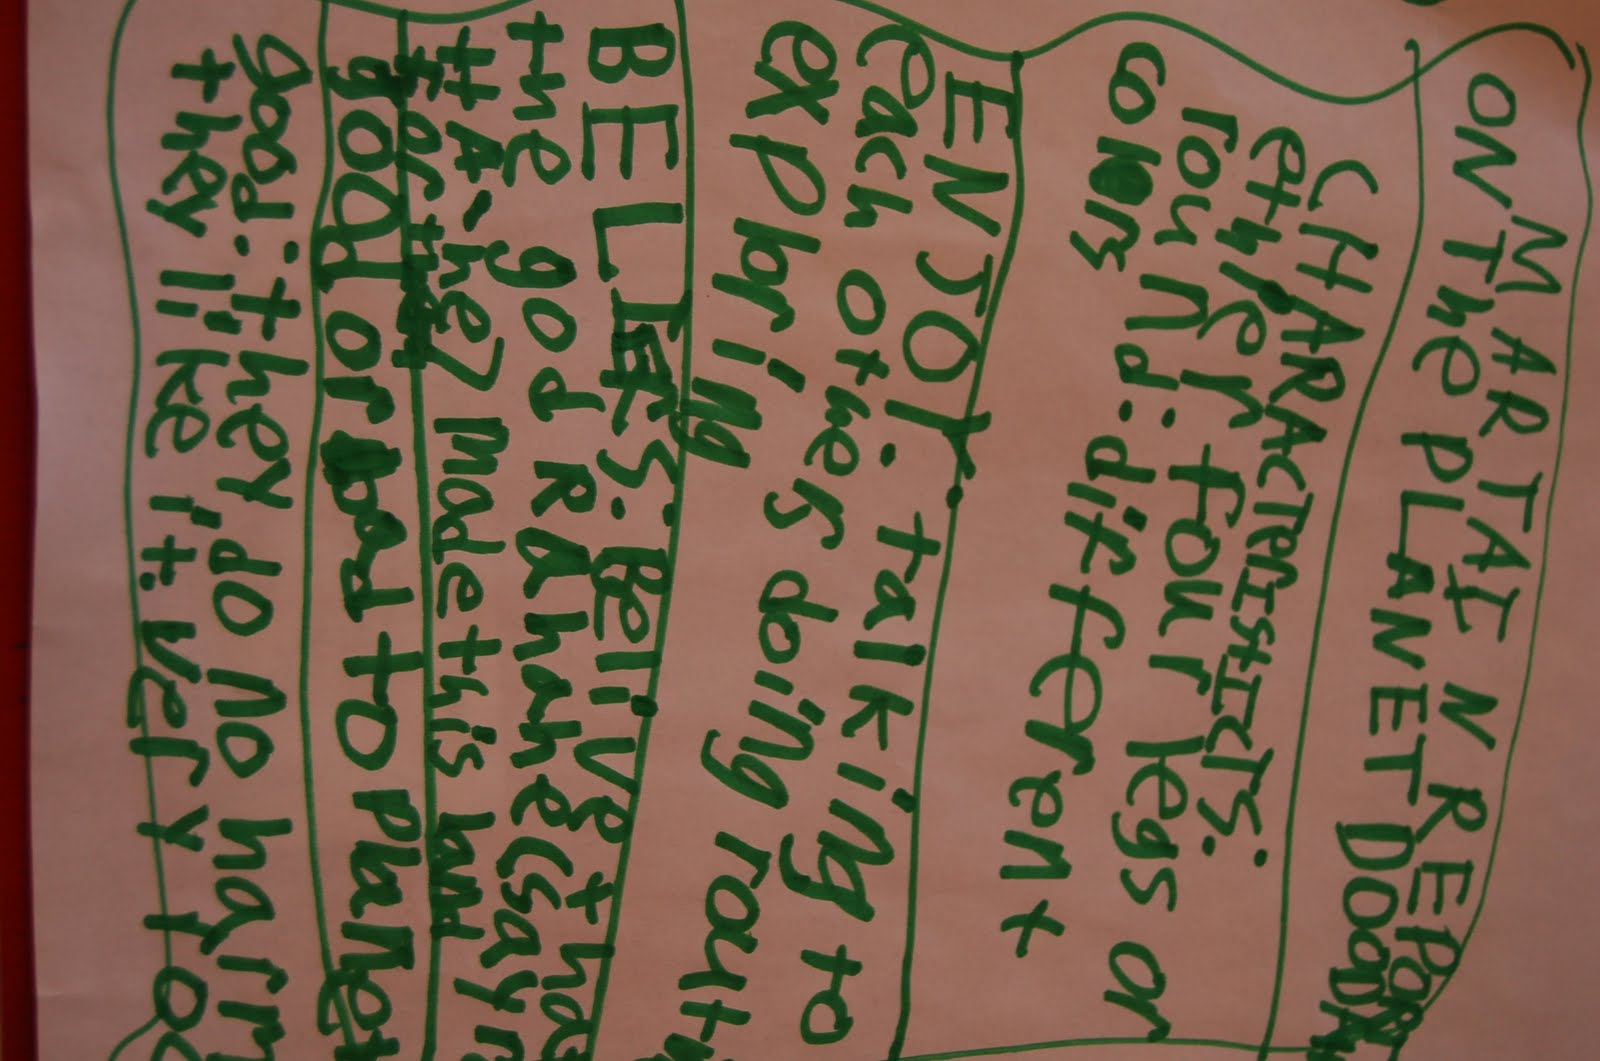 MARTAIN REPORt
ON The PLANET
CHARACTERISTICTS:
ethier
round: four legs or
different
colors
ENJOY: talking to
each others doing
expbring
BELIES: Belive tha
the god RAhahe(say
#A-he) made this
good or bad to Planet
good. they do no harm
they like it very